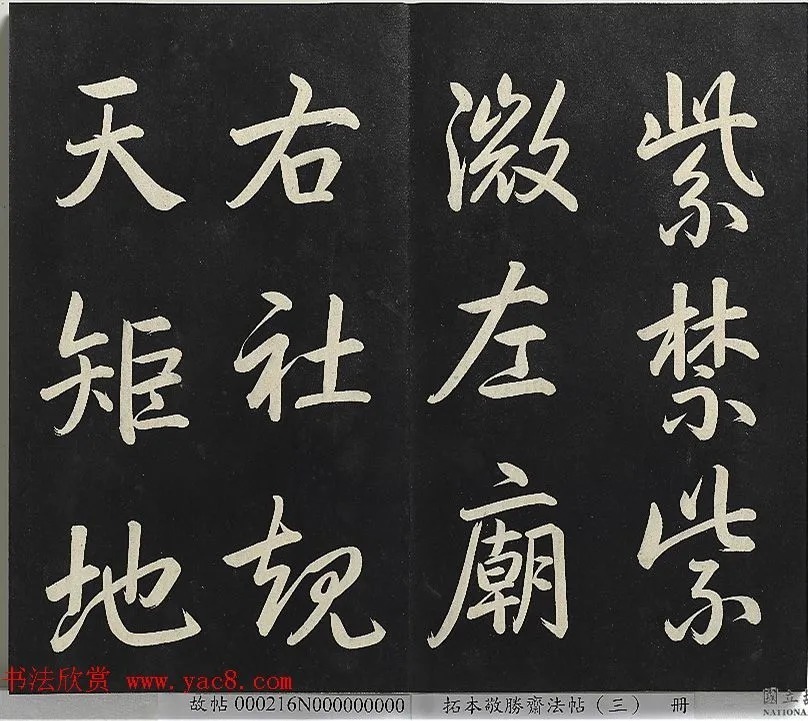 紫禁紫
微左廟
右社規
天矩地
书法欣赏 www.yac8.com
故帖 000216N000000000 拓本敬勝齋法帖（三） 冊
國立
NATIONA